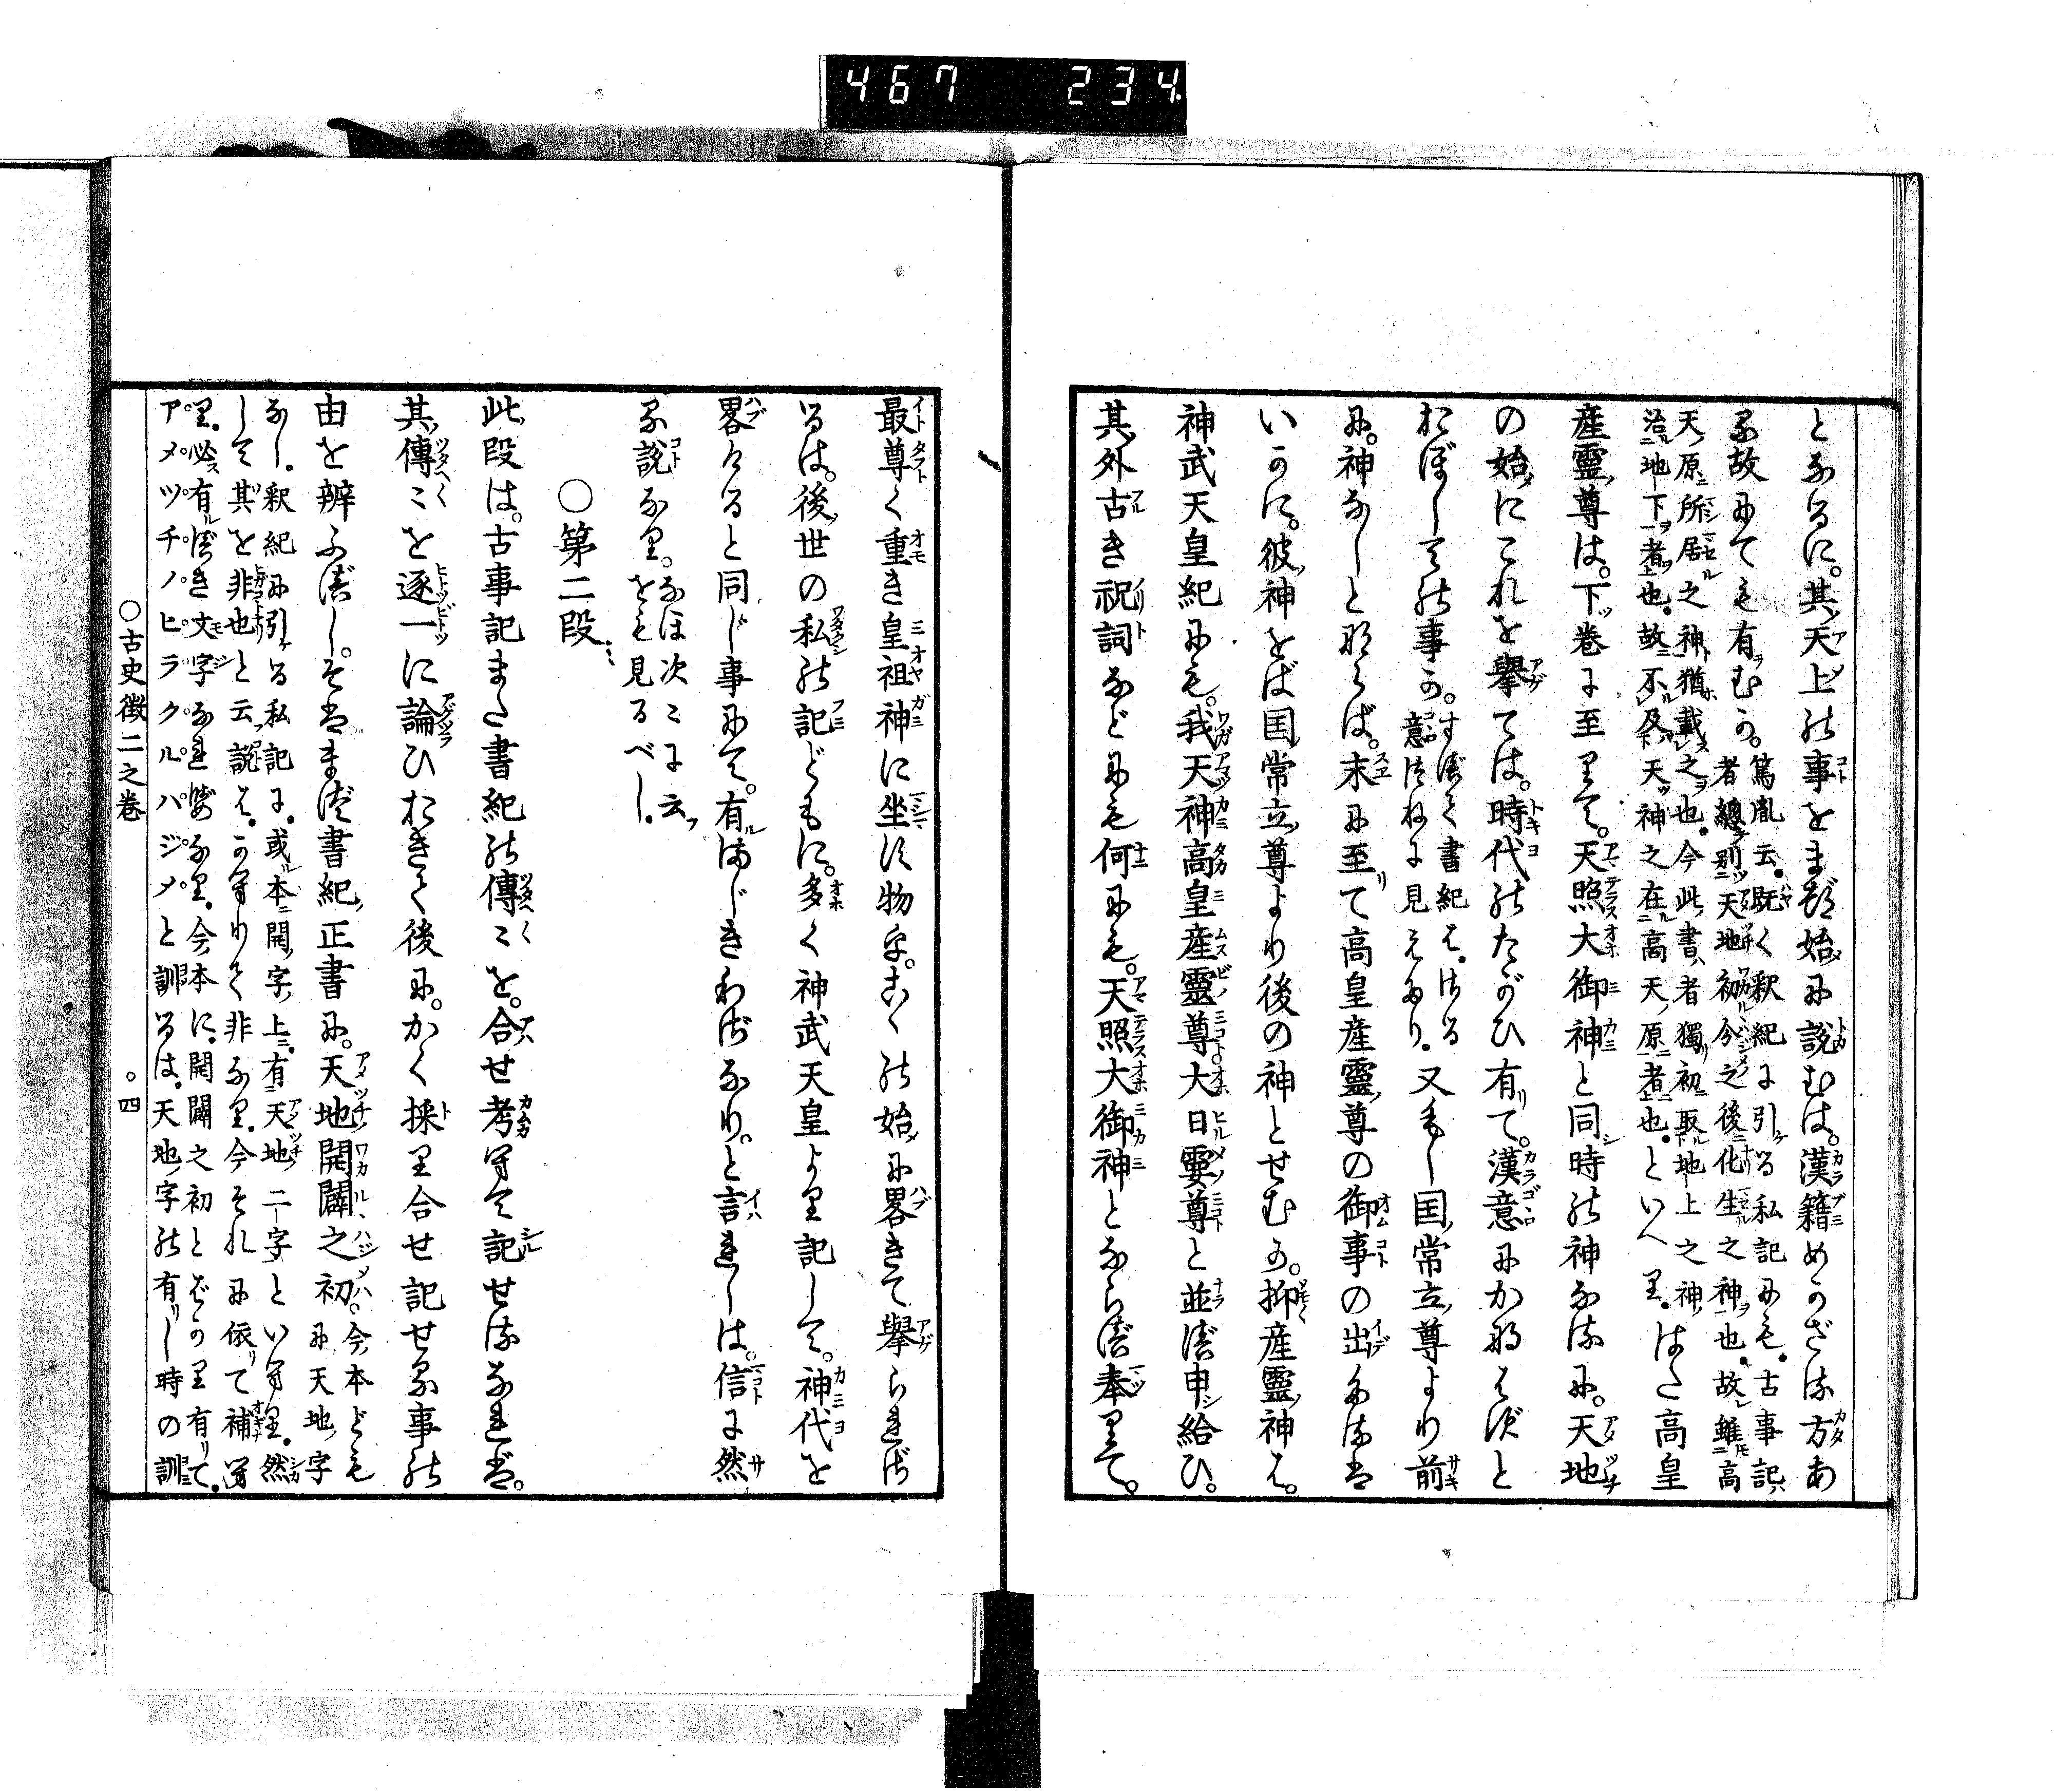 467 234
となるに。其天上の事をまづ始に説むは。漢籍めかざる方あ
る故にても有むか。篤胤云。既く釈紀に引る私記にも。古事記
者總別天地初分之後化生之神也。故雖高
天原所居之神猶載之也。今此書者獨初取地上之神
治地下者也。故不及天神之在高天原者也。といへり。はた高皇
産靈尊は。下巻に至りて。天照大御神と同時の神なるに。天地
の始にこれを擧ては。時代のたがひ有て。漢意にかなはずと
おぼしての事か。すべて書紀は。さる
意つねに見えたり。又もし国常立尊より前
に。神なしとならば。末に至て高皇産靈尊の御事の出たるは
いかに。彼神をば国常立尊より後の神とせむか。抑産靈神は。
神武天皇紀にも。我天神高皇産靈尊大日孁尊と並べ申給ひ。
其外古き祝詞などにも何にも。天照大御神とならべ奉りて。
最尊く重き皇祖神に坐す物を。記の始に畧きて擧られざ
るは。後世の私の記どもに。多く神武天皇より記して。神代を
畧けると同じ事にて。有まじきわざなり。と言れしは。信に然
る説なり。なほ次々に云
をも見るべし。
〇第二段
此段は。古事記また書紀の傳々を。合せ考へて記せるなれば。
其傳々を逐一に論ひおきて後に。かく採り合せ記せる事の
由を辨ふべし。そはまづ書紀正書に。天地開闢之初。今本ども
に天地字
なし。釈紀に引る私記に。或本開字上有天地二字といへり。然
して其を非也と云説は。かへりて非なり。今それに依て補へ
り。必有べき文字なればなり。今本に。開闢之初とばかり有て。
アメツチノヒラクルハジメと訓るは。天地字の有し時の訓
〇古史徴二之巻 〇四